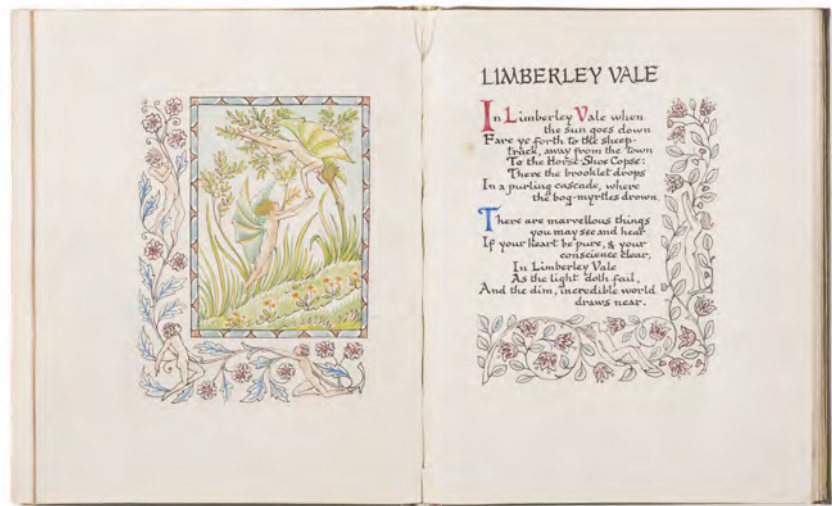 LIMBERLEY VALE
In Limberley Vale when
the sun goes down
Fare ye forth to the sheep-
track, away from the town
To the Horse-Shoe Copse:
There the brooklet drops
In a purling cascade, where
the bog-myrtles drown.
There are marvellous things
you may see and hear
If your heart be pure, & your
conscience clear,
In Limberley Vale
As the light doth fail,
And the dim, incredible world
draws near.